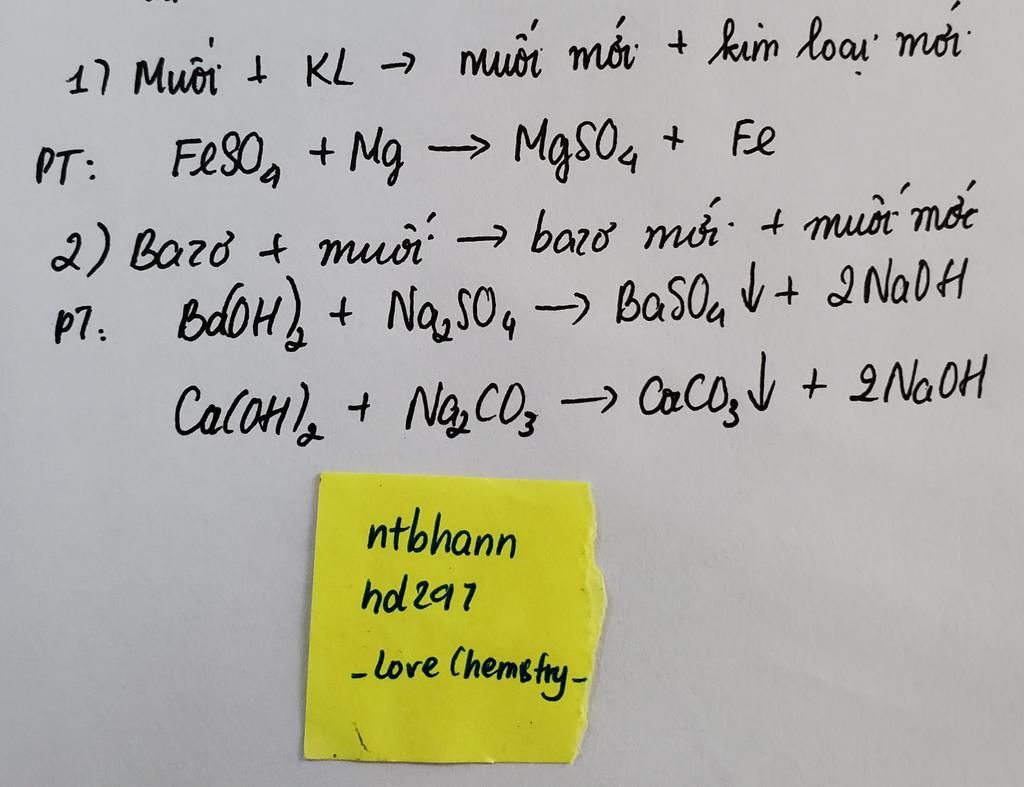 1) Muối + KL → muối mới + kim loại mới
PT: FeSO₄ + Mg → MgSO₄ + Fe
2) Bazơ + muối → bazơ mới + muối mới
PT: Ba(OH)₂ + Na₂SO₄ → BaSO₄↓ + 2NaOH
Ca(OH)₂ + Na₂CO₃ → CaCO₃↓ + 2NaOH
ntbhann
hd297
- Love Chemstry -